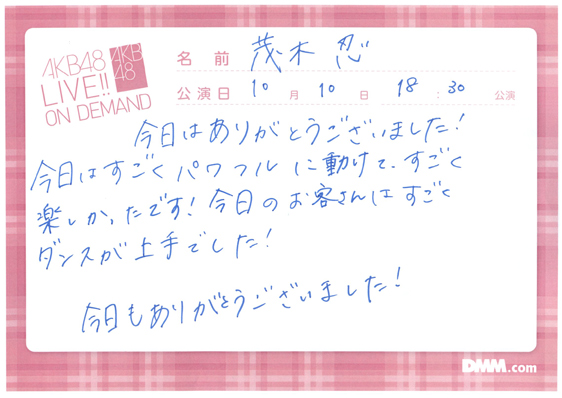 AKB48
LIVE!!
ON DEMAND
AKB
48
名前 茂木 忍
公演日 10月10日 18:30 公演
今日はありがとうございました!
今日はすごくパワフルに動けて、すごく
楽しかったです!今日のお客さんはすごく
ダンスが上手でした!
今日もありがとうございました!
DMM.com